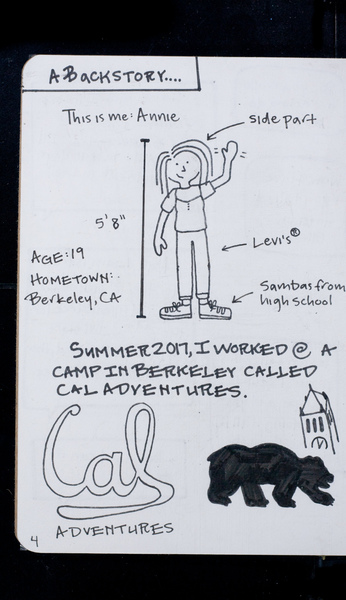 A BACKSTORY....
This is me: Annie
side part
5'8"
Levi's®
AGE: 19
HOMETOWN:
Berkeley, CA
Sambas from
high school
SUMMER 2017, I WORKED @ A
CAMP IN BERKELEY CALLED
CAL ADVENTURES.
Cal
ADVENTURES
4